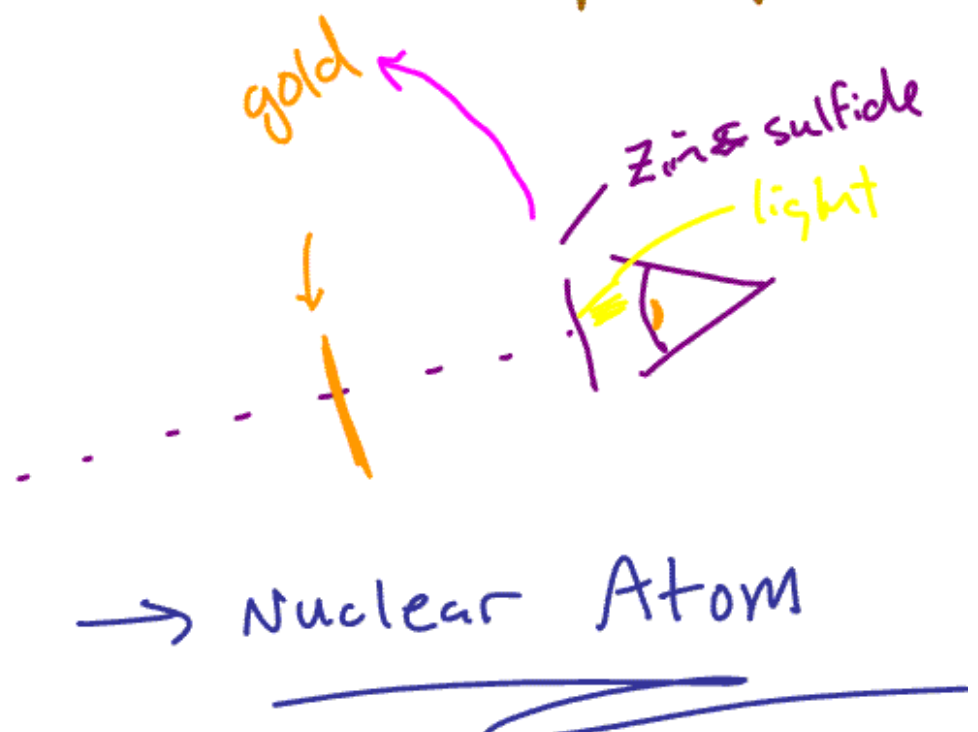 gold
Zinc sulfide
light
→ Nuclear Atom